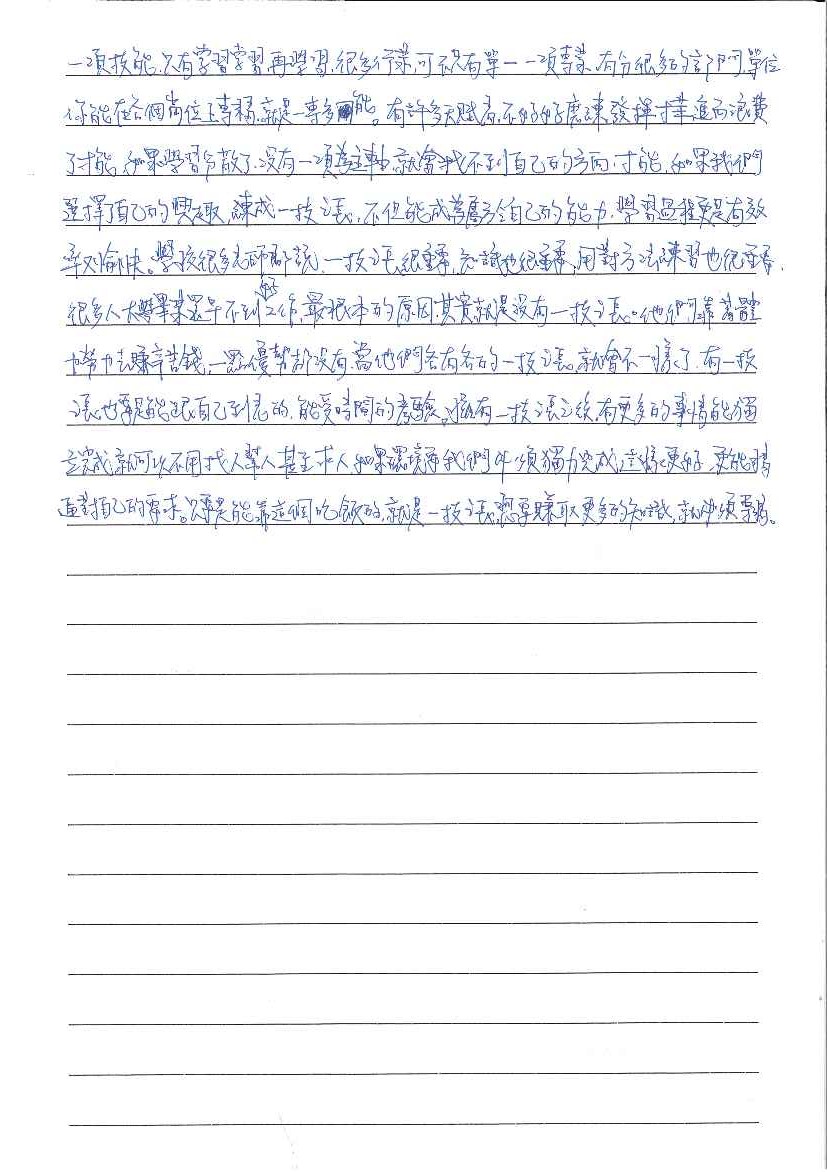 一項技能,只有學習學習再學習,很多行業,可不只有單一一項專業,有分很多的部門,單位
你能在各個崗位上專精,就是一專多能。有許多天賦者,不好好磨練發揮才華進而浪費
了才能,如果學習分散了,沒有一項為主軸,就會找不到自己的方向,才能,如果我們
選擇了自己的興趣,練成一技之長,不但能成為屬於自己的能力,學習過程更是有效
率又愉快。學校很多老師都說,一技之長很重要,知識也很重要,用對方法練習也很重要,
很多人大學畢業還是不到好工作,最根本的原因,其實就是沒有一技之長。他們靠著體
力勞力去賺辛苦錢,一點優勢都沒有,當他們各有各的一技之長,就會不一樣了,有一技
之長也要是能跟自己到老的,能受時間的考驗,擁有一技之長之後,有更多的事情能獨
立完成,就可以不用找人幫人甚至求人,如果環境要我們必須獨力完成,這樣更好,更能精
進對自己的要求。只要是能靠這個吃飯的,就是一技之長,想要賺取更多的知識,就必須專精。